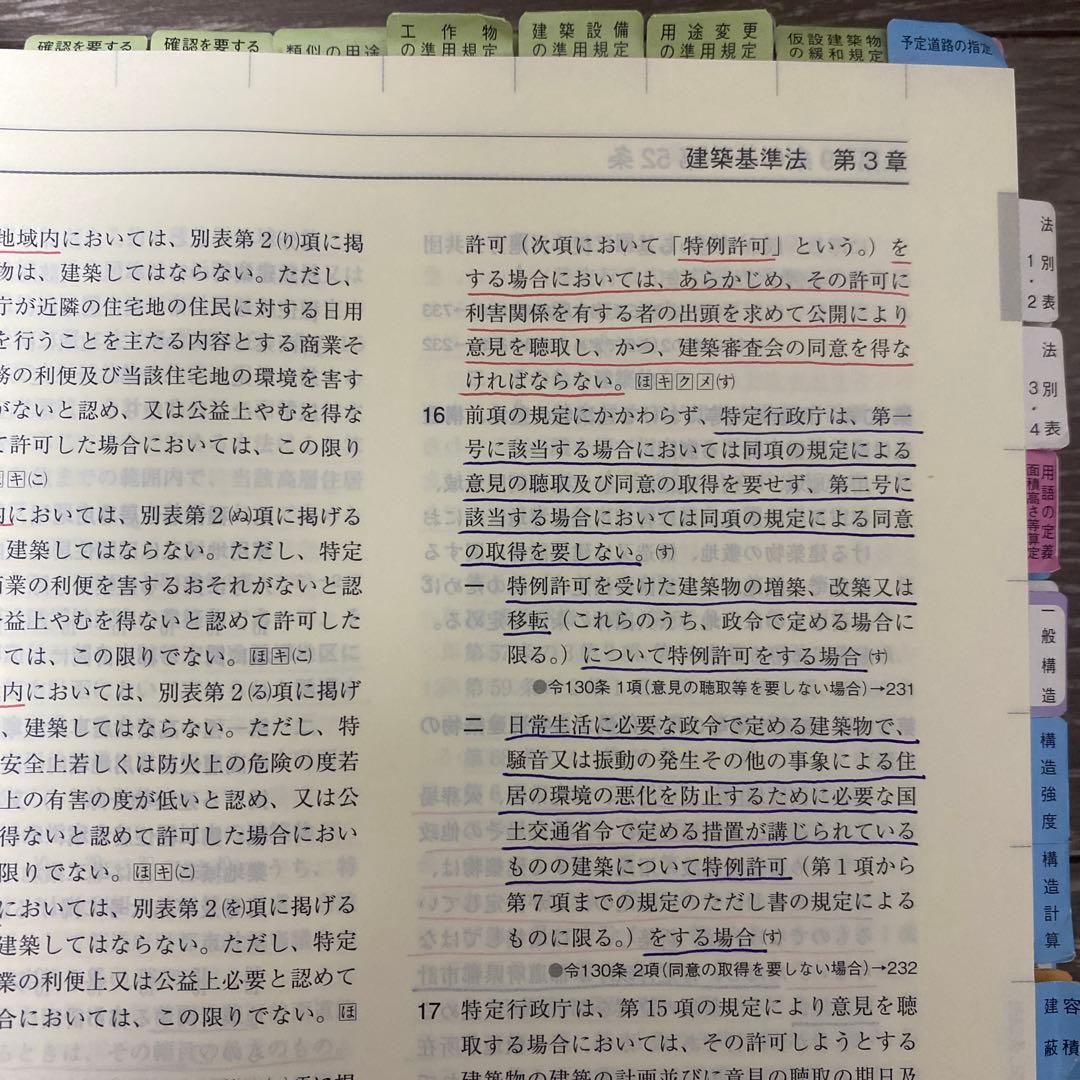 確認を要する
確認を要する
類似の用途
工作物
の準用規定
建築設備
の準用規定
用途変更
の準用規定
仮設建築物
の緩和規定
予定道路の指定
建築基準法 第3章
地域内においては、別表第2(り)項に掲
物は、建築してはならない。ただし、
庁が近隣の住宅地の住民に対する日用
を行うことを主たる内容とする商業そ
務の利便及び当該住宅地の環境を害す
がないと認め、又は公益上やむを得な
て許可した場合においては、この限り
キ(こ)
内においては、別表第2(ぬ)項に掲げる
建築してはならない。ただし、特定
商業の利便を害するおそれがないと認
益上やむを得ないと認めて許可した
ては、この限りでない。ほキ(こ)
内においては、別表第2(る)項に掲げ
、建築してはならない。ただし、特
安全上若しくは防火上の危険の度若
上の有害の度が低いと認め、又は公
得ないと認めて許可した場合におい
限りでない。ほキ(こ)
においては、別表第2(を)項に掲げる
建築してはならない。ただし、特定
業の利便上又は公益上必要と認めて
合においては、この限りでない。ほ
許可（次項において「特例許可」という。）を
する場合においては、あらかじめ、その許可に
利害関係を有する者の出頭を求めて公開により
意見を聴取し、かつ、建築審査会の同意を得な
ければならない。ほキクメ(す)
16 前項の規定にかかわらず、特定行政庁は、第一
号に該当する場合においては同項の規定による
意見の聴取及び同意の取得を要せず、第二号に
該当する場合においては同項の規定による同意
の取得を要しない。(す)
一 特例許可を受けた建築物の増築、改築又は
移転（これらのうち、政令で定める場合に
限る。）について特例許可をする場合(す)
●令130条 1項(意見の聴取等を要しない場合)→231
二 日常生活に必要な政令で定める建築物で、
騒音又は振動の発生その他の事象による住
居の環境の悪化を防止するために必要な国
土交通省令で定める措置が講じられている
ものの建築について特例許可（第1項から
第7項までの規定のただし書の規定による
ものに限る。）をする場合(す)
●令130条 2項(同意の取得を要しない場合)→232
17 特定行政庁は、第15項の規定により意見を聴
取する場合においては、その許可しようとする
建築物の建築の計画並びに意見の聴取の期日及
法別表
1・2
法別表
3・4
用語の定義
面積高さ等算定
一般構造
構造強度
構造計算
容積
建蔽